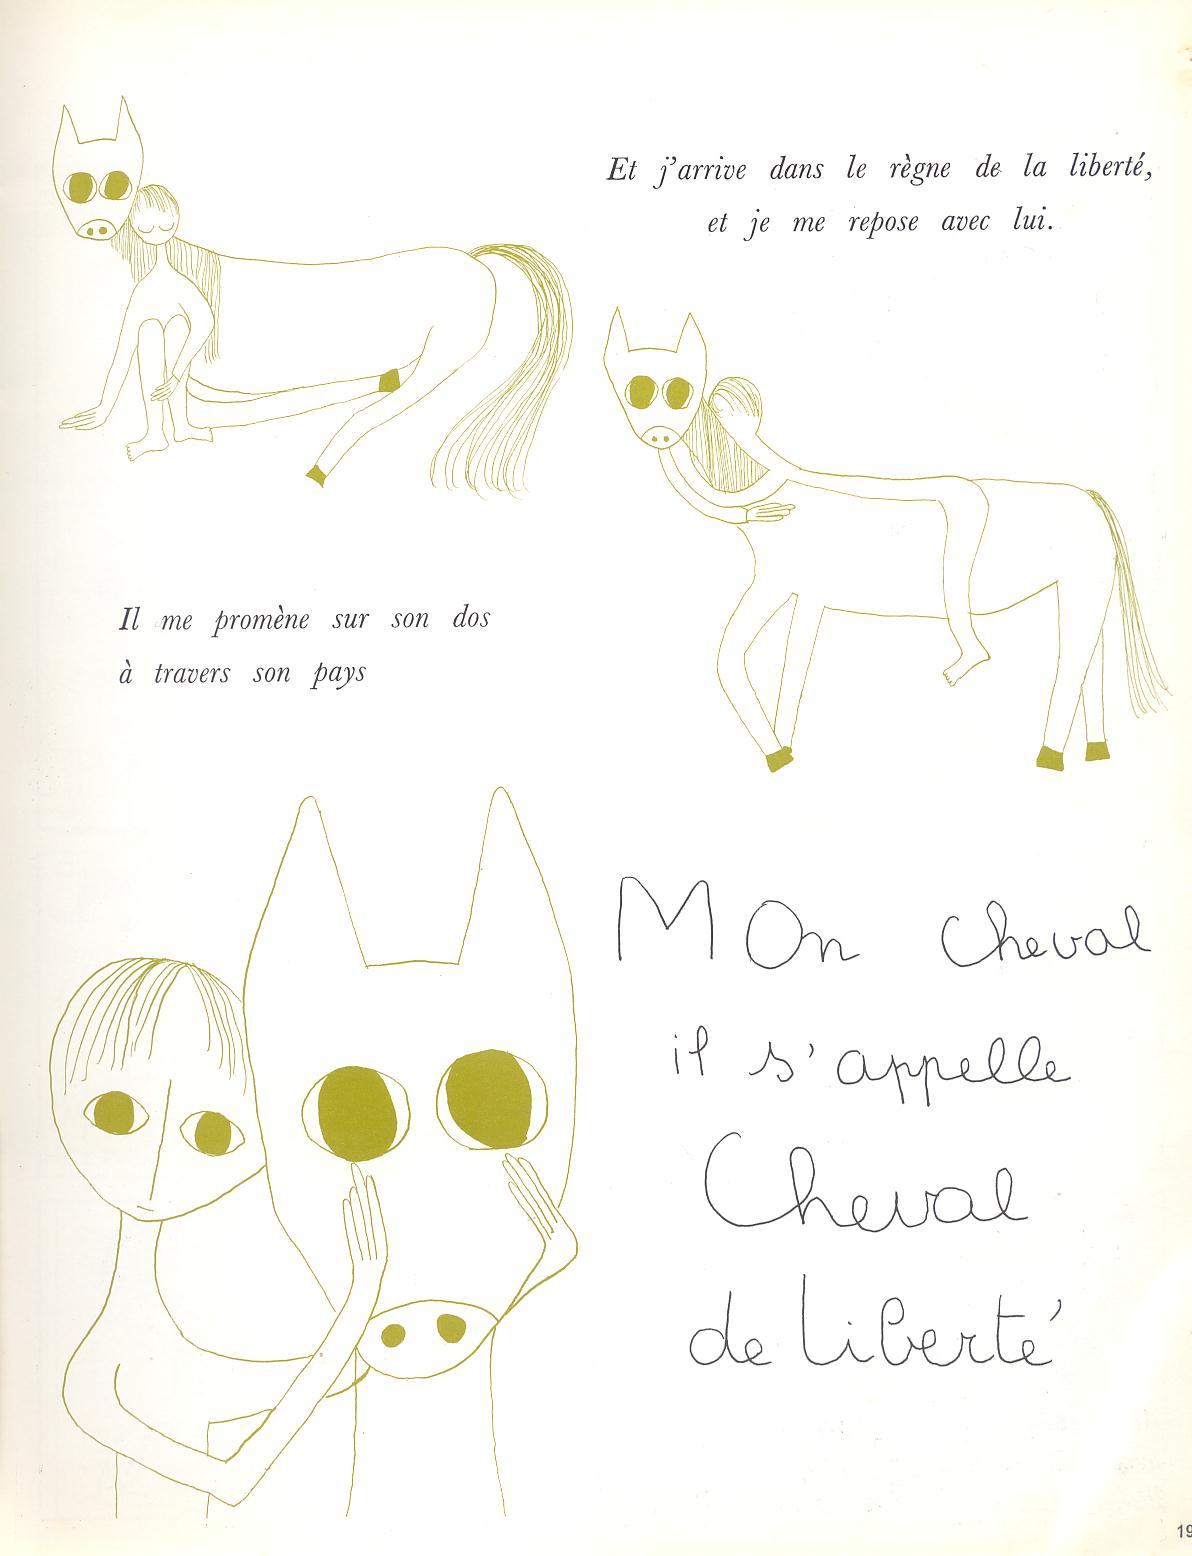 Et j'arrive dans le règne de la liberté,
et je me repose avec lui.
Il me promène sur son dos
à travers son pays
MOn cheval
il s'appelle
Cheval
de liberté
19